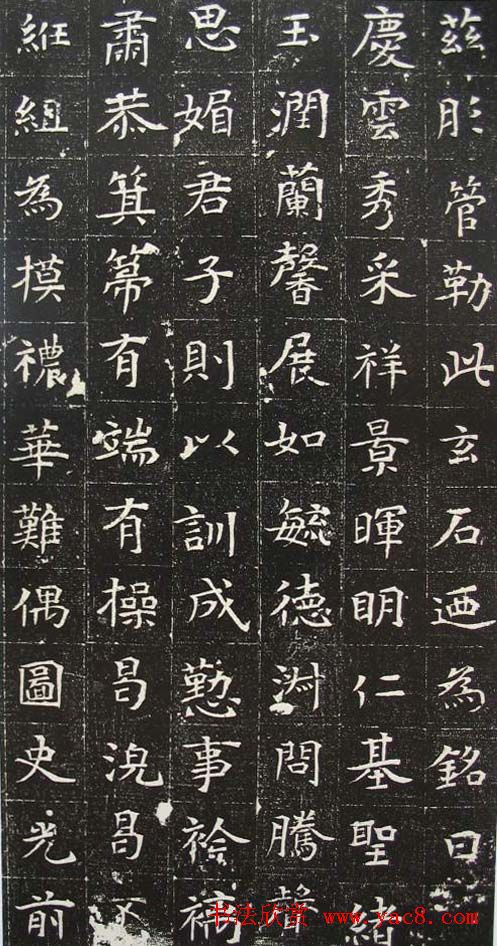 茲彤管勒此玄石迺為銘曰
慶雲秀采祥景暉明仁基聖緒
玉潤蘭馨展如毓德淑問騰聲
思媚君子則以訓成懃事袷禘
肅恭箕帚有端有操曷涗曷
紝組為摸襛華難偶圖史光前
书法欣赏 www.yac8.com